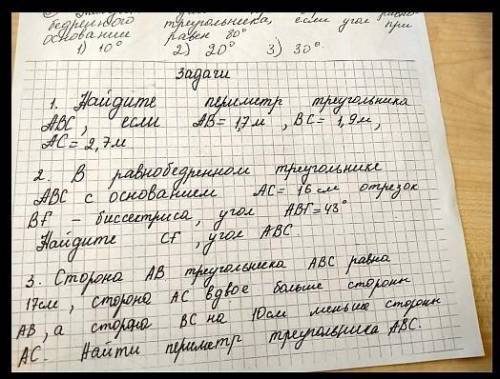 бедренного треугольника, если угол при
основании равен 80°
1) 10° 2) 20° 3) 30°
Задачи
1. Найдите периметр треугольника
ABC, если AB = 1,7м, BC = 1,9м,
AC = 2,7м
2. В равнобедренном треугольнике
ABC с основанием AC = 16 см отрезок
BF - биссектриса, угол ABF = 43°
Найдите CF, угол ABC.
3. Сторона AB треугольника ABC равна
17см, сторона AC вдвое больше стороны
AB, а сторона BC на 10см меньше стороны
AC. Найти периметр треугольника ABC.